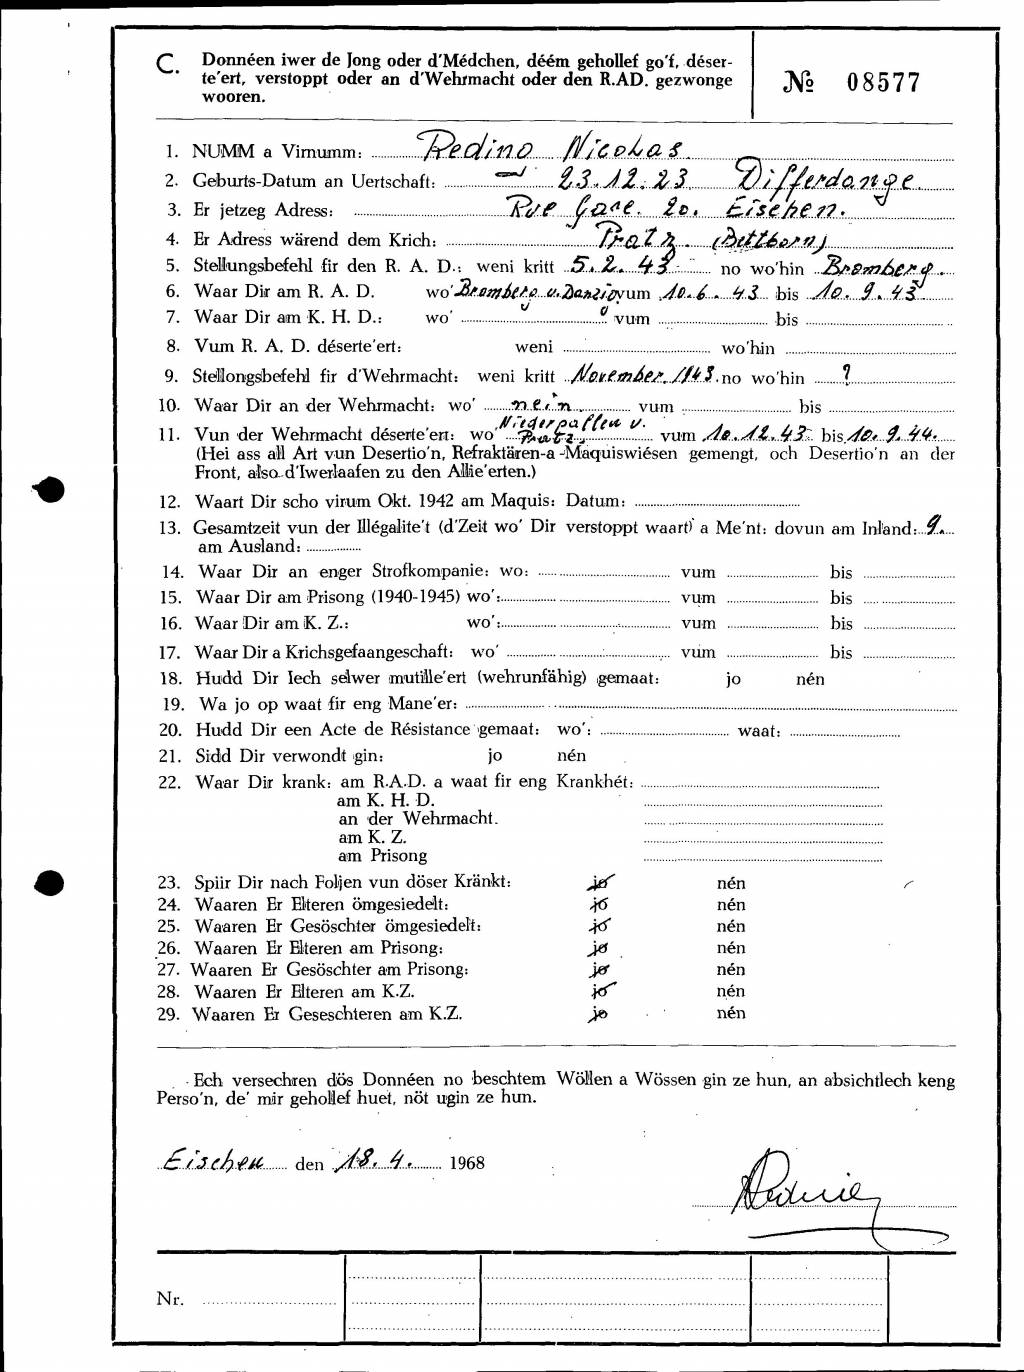 C. Donnéen iwer de Jong oder d'Médchen, déém gehollef go'f, déser-
te'ert, verstoppt oder an d'Wehrmacht oder den R.AD. gezwonge
wooren.
№ 08577
1. NUMM a Virnumm: Redino Nicolas.
2. Geburts-Datum an Uertschaft: 23.12.23 Differdange.
3. Er jetzeg Adress: Rue Gare. 20. Eischen.
4. Er Adress wärend dem Krich: Pratz. (Bettborn)
5. Stellungsbefehl fir den R. A. D.: weni kritt 5.2.43 no wo'hin Bromberg.
6. Waar Dir am R. A. D. wo' Bromberg u. Danzig vum 10.6.43 bis 10.9.43
7. Waar Dir am K. H. D.: wo' vum bis
8. Vum R. A. D. déserte'ert: weni wo'hin
9. Stellongsbefehl fir d'Wehrmacht: weni kritt November 1943. no wo'hin ?
10. Waar Dir an der Wehrmacht: wo' nein. vum bis
11. Vun der Wehrmacht déserte'ert: wo' Niederpallen u. Pratz. vum 10.12.43 bis 10.9.44.
(Hei ass all Art vun Desertio'n, Refraktären-a-Maquiswiésen gemengt, och Desertio'n an der
Front, also d'Iwerlaafen zu den Allie'erten.)
12. Waart Dir scho virum Okt. 1942 am Maquis: Datum:
13. Gesamtzeit vun der Illégalite't (d'Zeit wo' Dir verstoppt waart) a Me'nt: dovun am Inland: 9.
am Ausland:
14. Waar Dir an enger Strofkompanie: wo: vum bis
15. Waar Dir am Prisong (1940-1945) wo': vum bis
16. Waar Dir am K. Z.: wo': vum bis
17. Waar Dir a Krichsgefaangeschaft: wo' vum bis
18. Hudd Dir Iech selwer mutille'ert (wehrunfähig) gemaat: jo nén
19. Wa jo op waat fir eng Mane'er:
20. Hudd Dir een Acte de Résistance gemaat: wo': waat:
21. Sidd Dir verwondt gin: jo nén
22. Waar Dir krank: am R.A.D. a waat fir eng Krankhét:
am K. H. D.
an der Wehrmacht.
am K. Z.
am Prisong
23. Spiir Dir nach Foljen vun döser Kränkt: jo nén
24. Waaren Er Elteren ömgesiedelt: jo nén
25. Waaren Er Gesöschter ömgesiedelt: jo nén
26. Waaren Er Elteren am Prisong: jo nén
27. Waaren Er Gesöschter am Prisong: jo nén
28. Waaren Er Elteren am K.Z. jo nén
29. Waaren Er Geseschteren am K.Z. jo nén
Ech versechren dös Donnéen no beschtem Wöllen a Wössen gin ze hun, an absichtlech keng
Perso'n, de' mir gehollef huet, nöt ugin ze hun.
Eischen den 18.4. 1968
Nr.